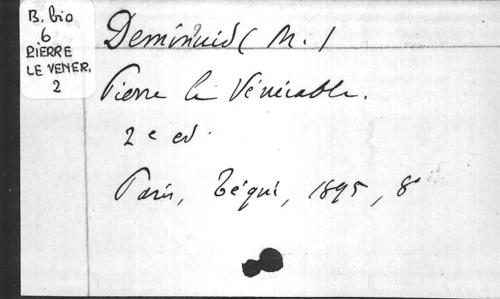 B. bio
6
PIERRE
LE VENER.
2
Deminuid (M.)
Pierre le Vénérable.
2e ed.
Paris, Téqui, 1895, 8°